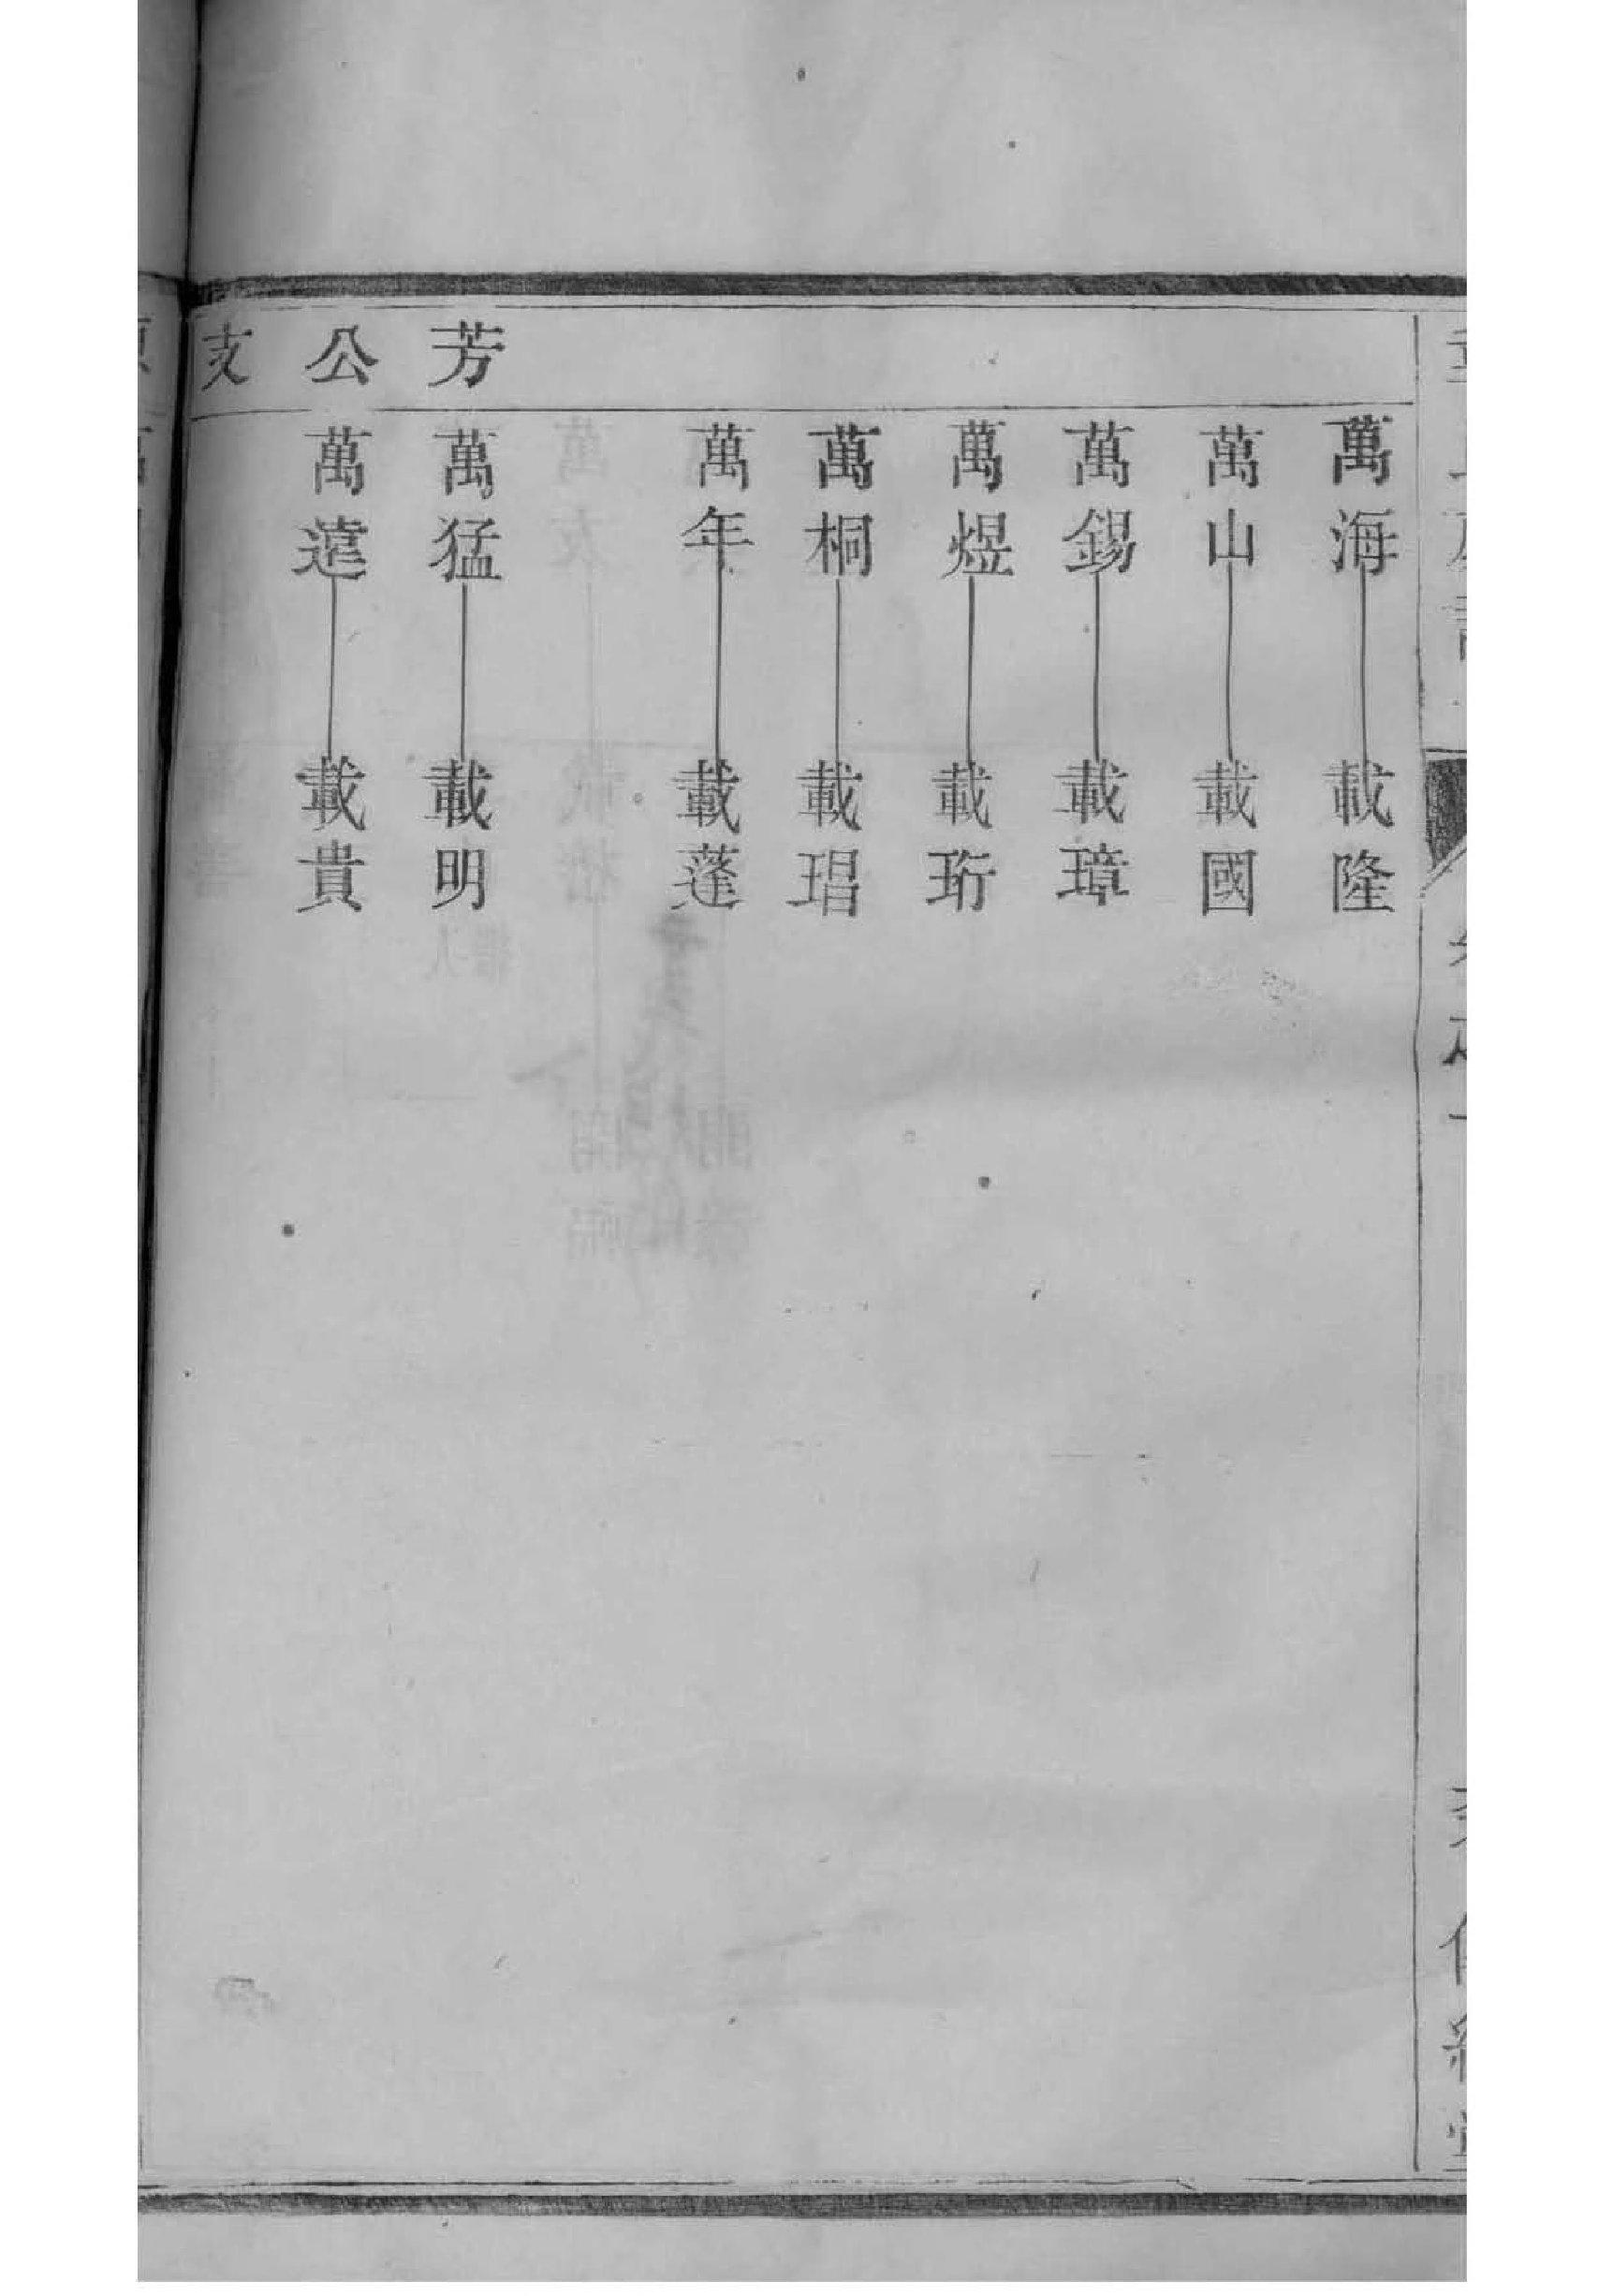 萬海 載隆
萬山 載國
萬錫 載璋
萬煜 載珩
萬桐 載琩
萬年 載蓬
芳公支
萬猛 載明
萬遠 載貴